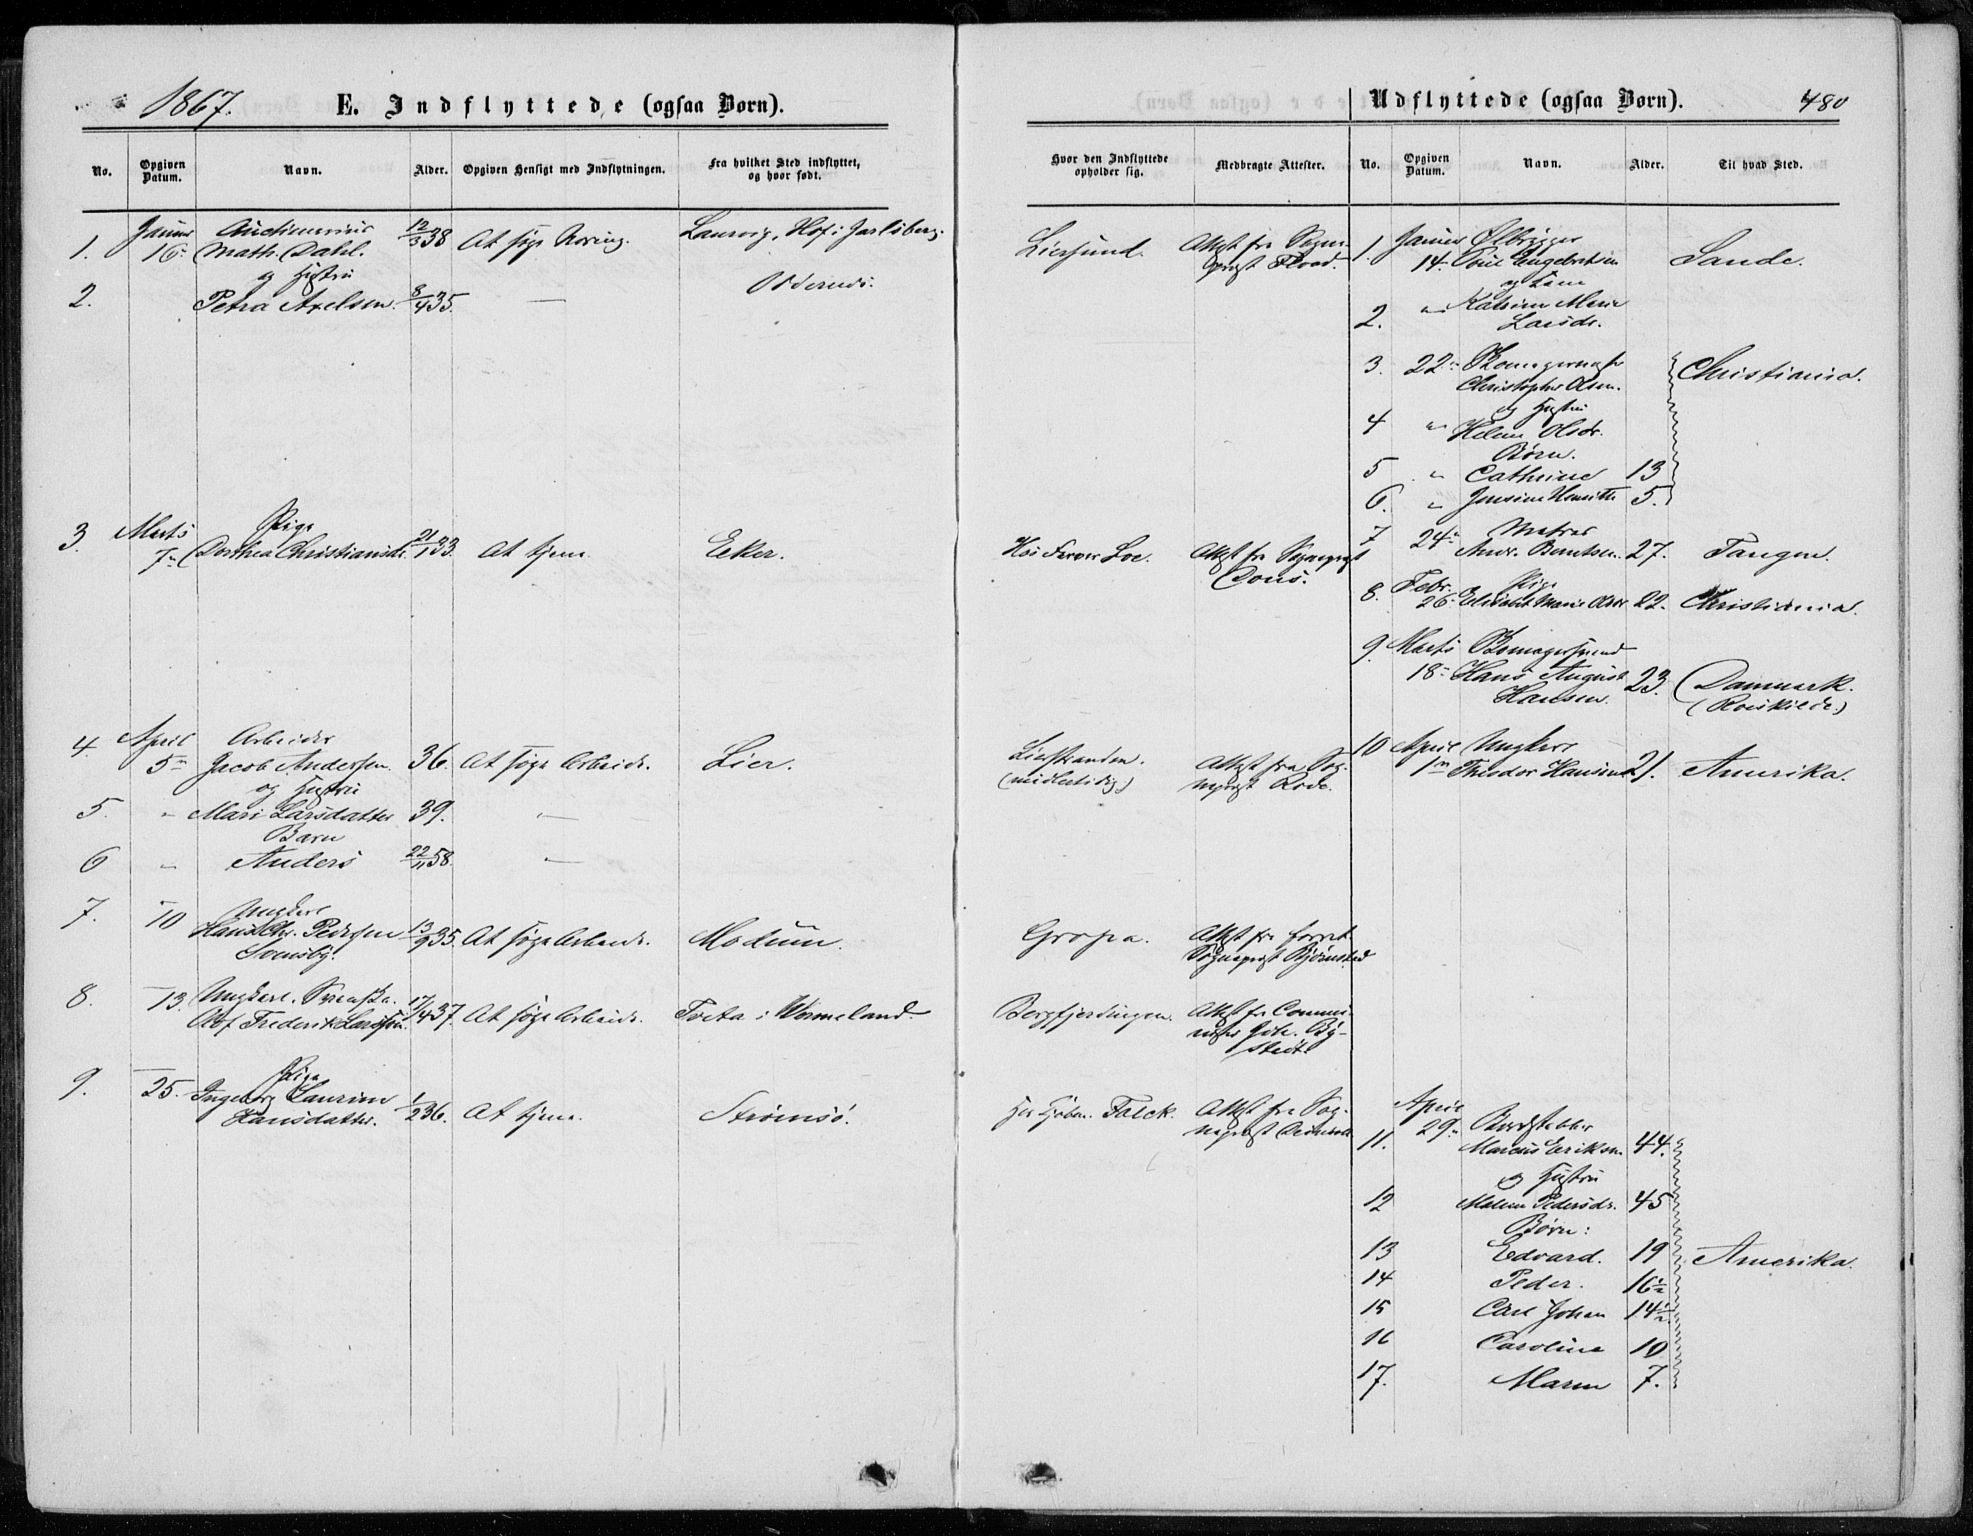 1867.
E. Indflyttede (ogsaa Børn).
No.
Opgiven Datum.
Navn.
Alder.
Opgiven Hensigt med Indflytningen.
Fra hvilket Sted indflyttet,
og hvor født.
1.
16
Math. Dahl.
12/3 38
At søge Næring.
Laurvig, Hof i Jarlsberg.
og Hustru
2.
Petra Axelsen.
8/4 35.
—
3.
Marts
7
Pige
Dorthea Christiansdr.
21/1 33.
At tjene
Eeker.
4.
April
5
Arbeider
Jacob Andersen
36.
At søge Arbeide.
Lier.
og Hustru
5.
Mari Larsdatter
39.
—
Barn
6
Anders
22/11 58.
—
7.
10
Ungkarl
Hans Chr. Pedersen
13/9 35.
At søge Arbeide.
Modum.
8.
13.
Ungkarl. Svenske.
Olof Frederik Larsson.
17/4 37.
At søge Arbeide.
Tveta i Wermeland.
9.
25.
Pige
Ingeborg Laurine
Hansdatter.
1/2 36.
At tjene
Strømsø.
Udflyttede (ogsaa Børn).
480
Hvor den Indflyttede
opholder sig.
Medbragte Attester.
No.
Opgiven Datum.
Navn.
Alder.
Til hvad Sted.
Liersund.
Attest fra Sogne-
præst Flood.
1.
14.
Sande.
2.
Katrine Marie
Larsdr.
3.
22
Christopher Olsen.
Christiania.
og Hustru
4
Helene Olsdr.
Børn.
5
Cathrine
13
6.
Jensine Henriette
5.
7
24
Matros
Andr. Berntsen.
27.
Tangen.
Attest fra Sognepræst
8.
Febr.
26
Pige
Elisabet Marie Olsdr
22.
Christiania.
9.
Marts
18
Hans August
Hansen.
23.
Danmark.
(Roeskilde.)
Lierstranden.
(midlertidig)
Attest fra Sog-
nepræst Rode.
10
April
1
Ungkarl
Theodor Hansen
21.
Amerika.
Gropa.
Attest fra forret.
Sognepræst Bjørnstad
Bergfjerdingen.
Attest fra Commi-
Hos Kjøbm. Falck.
Attest fra Sog-
nepræst
April
29
11.
Marcus Eriksen
44.
og Hustru
12
Malene Pedersdr.
45
Børn:
13
Edvard.
19
Amerika.
14
Peder.
16½
15
Carl Johan
14½
16
Caroline
10
17.
Maren
7.